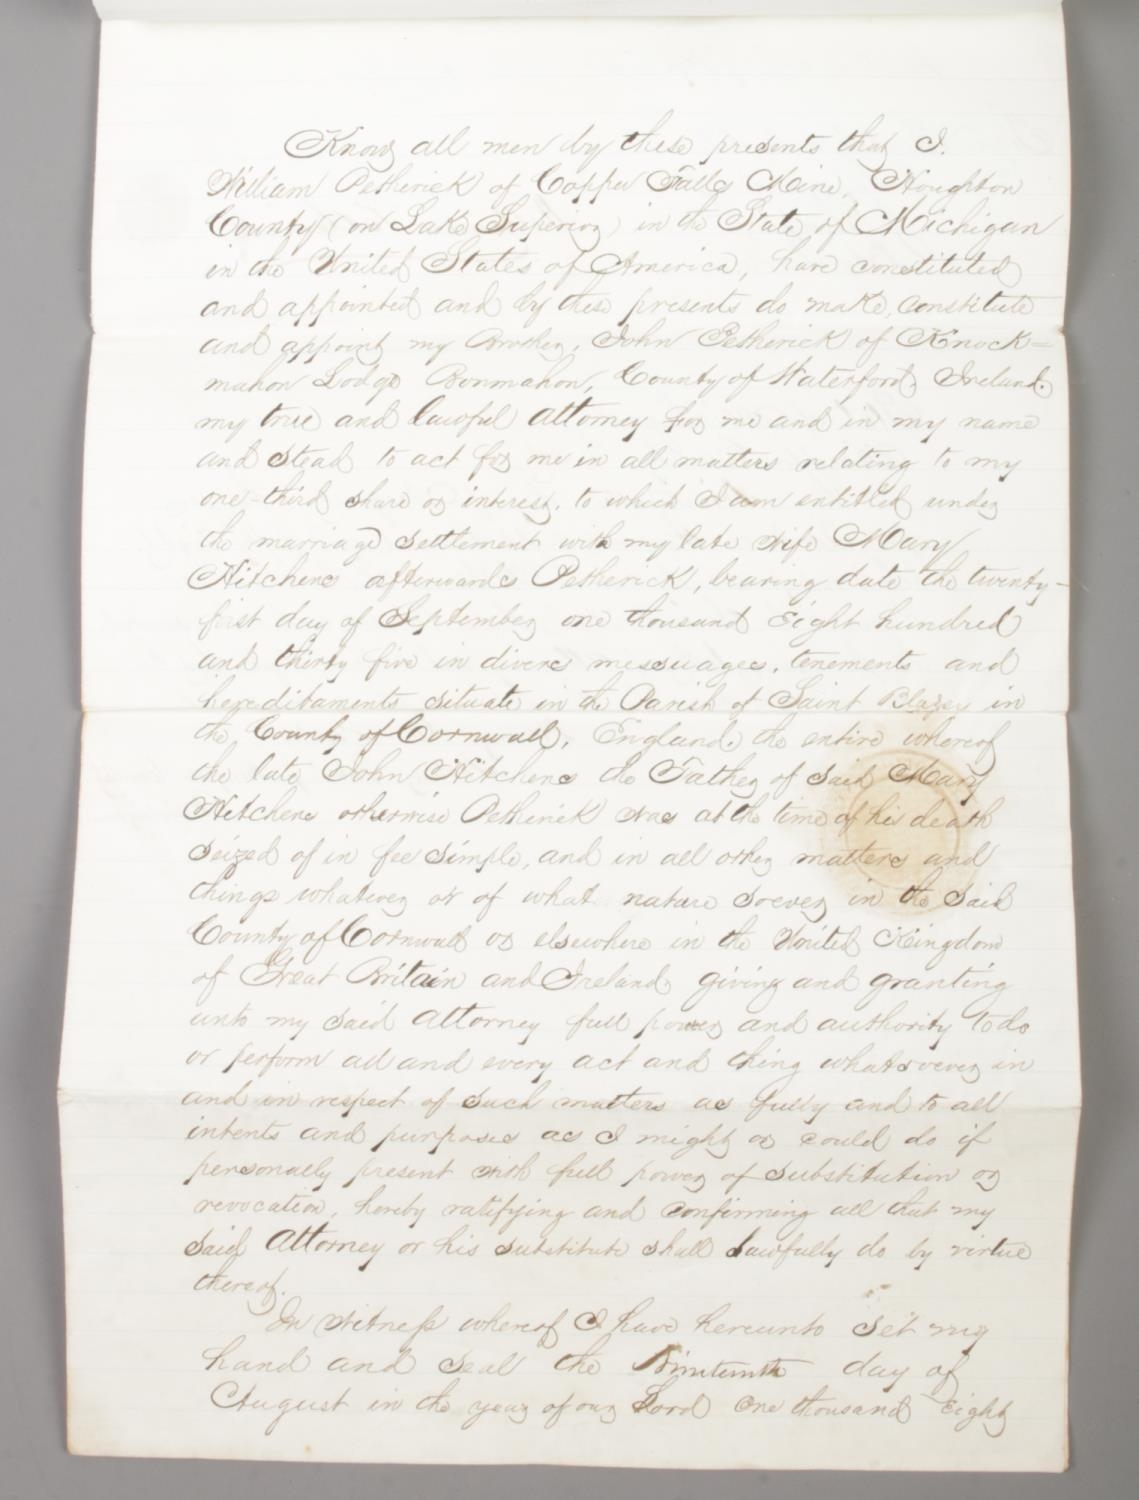 Know all men by these presents that I.
William Petherick of Copper Falls Mine, Houghton
County (on Lake Superior) in the State of Michigan
in the United States of America, have constituted
and appointed and by these presents do make, constitute
and appoint my Brother, John Petherick of Knock=
mahon Lodge Bonmahon, County of Waterford, Ireland.
my true and lawful attorney for me and in my name
and stead to act for me in all matters relating to my
one-third share or interest, to which I am entitled under
the marriage settlement with my late wife Mary
Hitchens afterwards Petherick, bearing date the twenty-
first day of September one thousand Eight hundred
and thirty five in divers messuages, tenements and
hereditaments situate in the Parish of Saint Blazey in
the County of Cornwall, England, the entire whereof
the late John Hitchens the Father of said Mary
Hitchens otherwise Petherick was at the time of his death
seized of in fee simple, and in all other matters and
things whatever or of what nature soever in the said
County of Cornwall or elsewhere in the United Kingdom
of Great Britain and Ireland, giving and granting
unto my said attorney full power and authority to do
or perform all and every act and thing whatsoever in
and in respect of such matters as fully and to all
intents and purposes as I might or could do if
personally present with full power of substitution or
revocation, hereby ratifying and confirming all that my
said Attorney or his substitute shall lawfully do by virtue
thereof.
In witness whereof I have hereunto set my
hand and seal the Nineteenth day of
August in the year of our Lord One thousand Eight